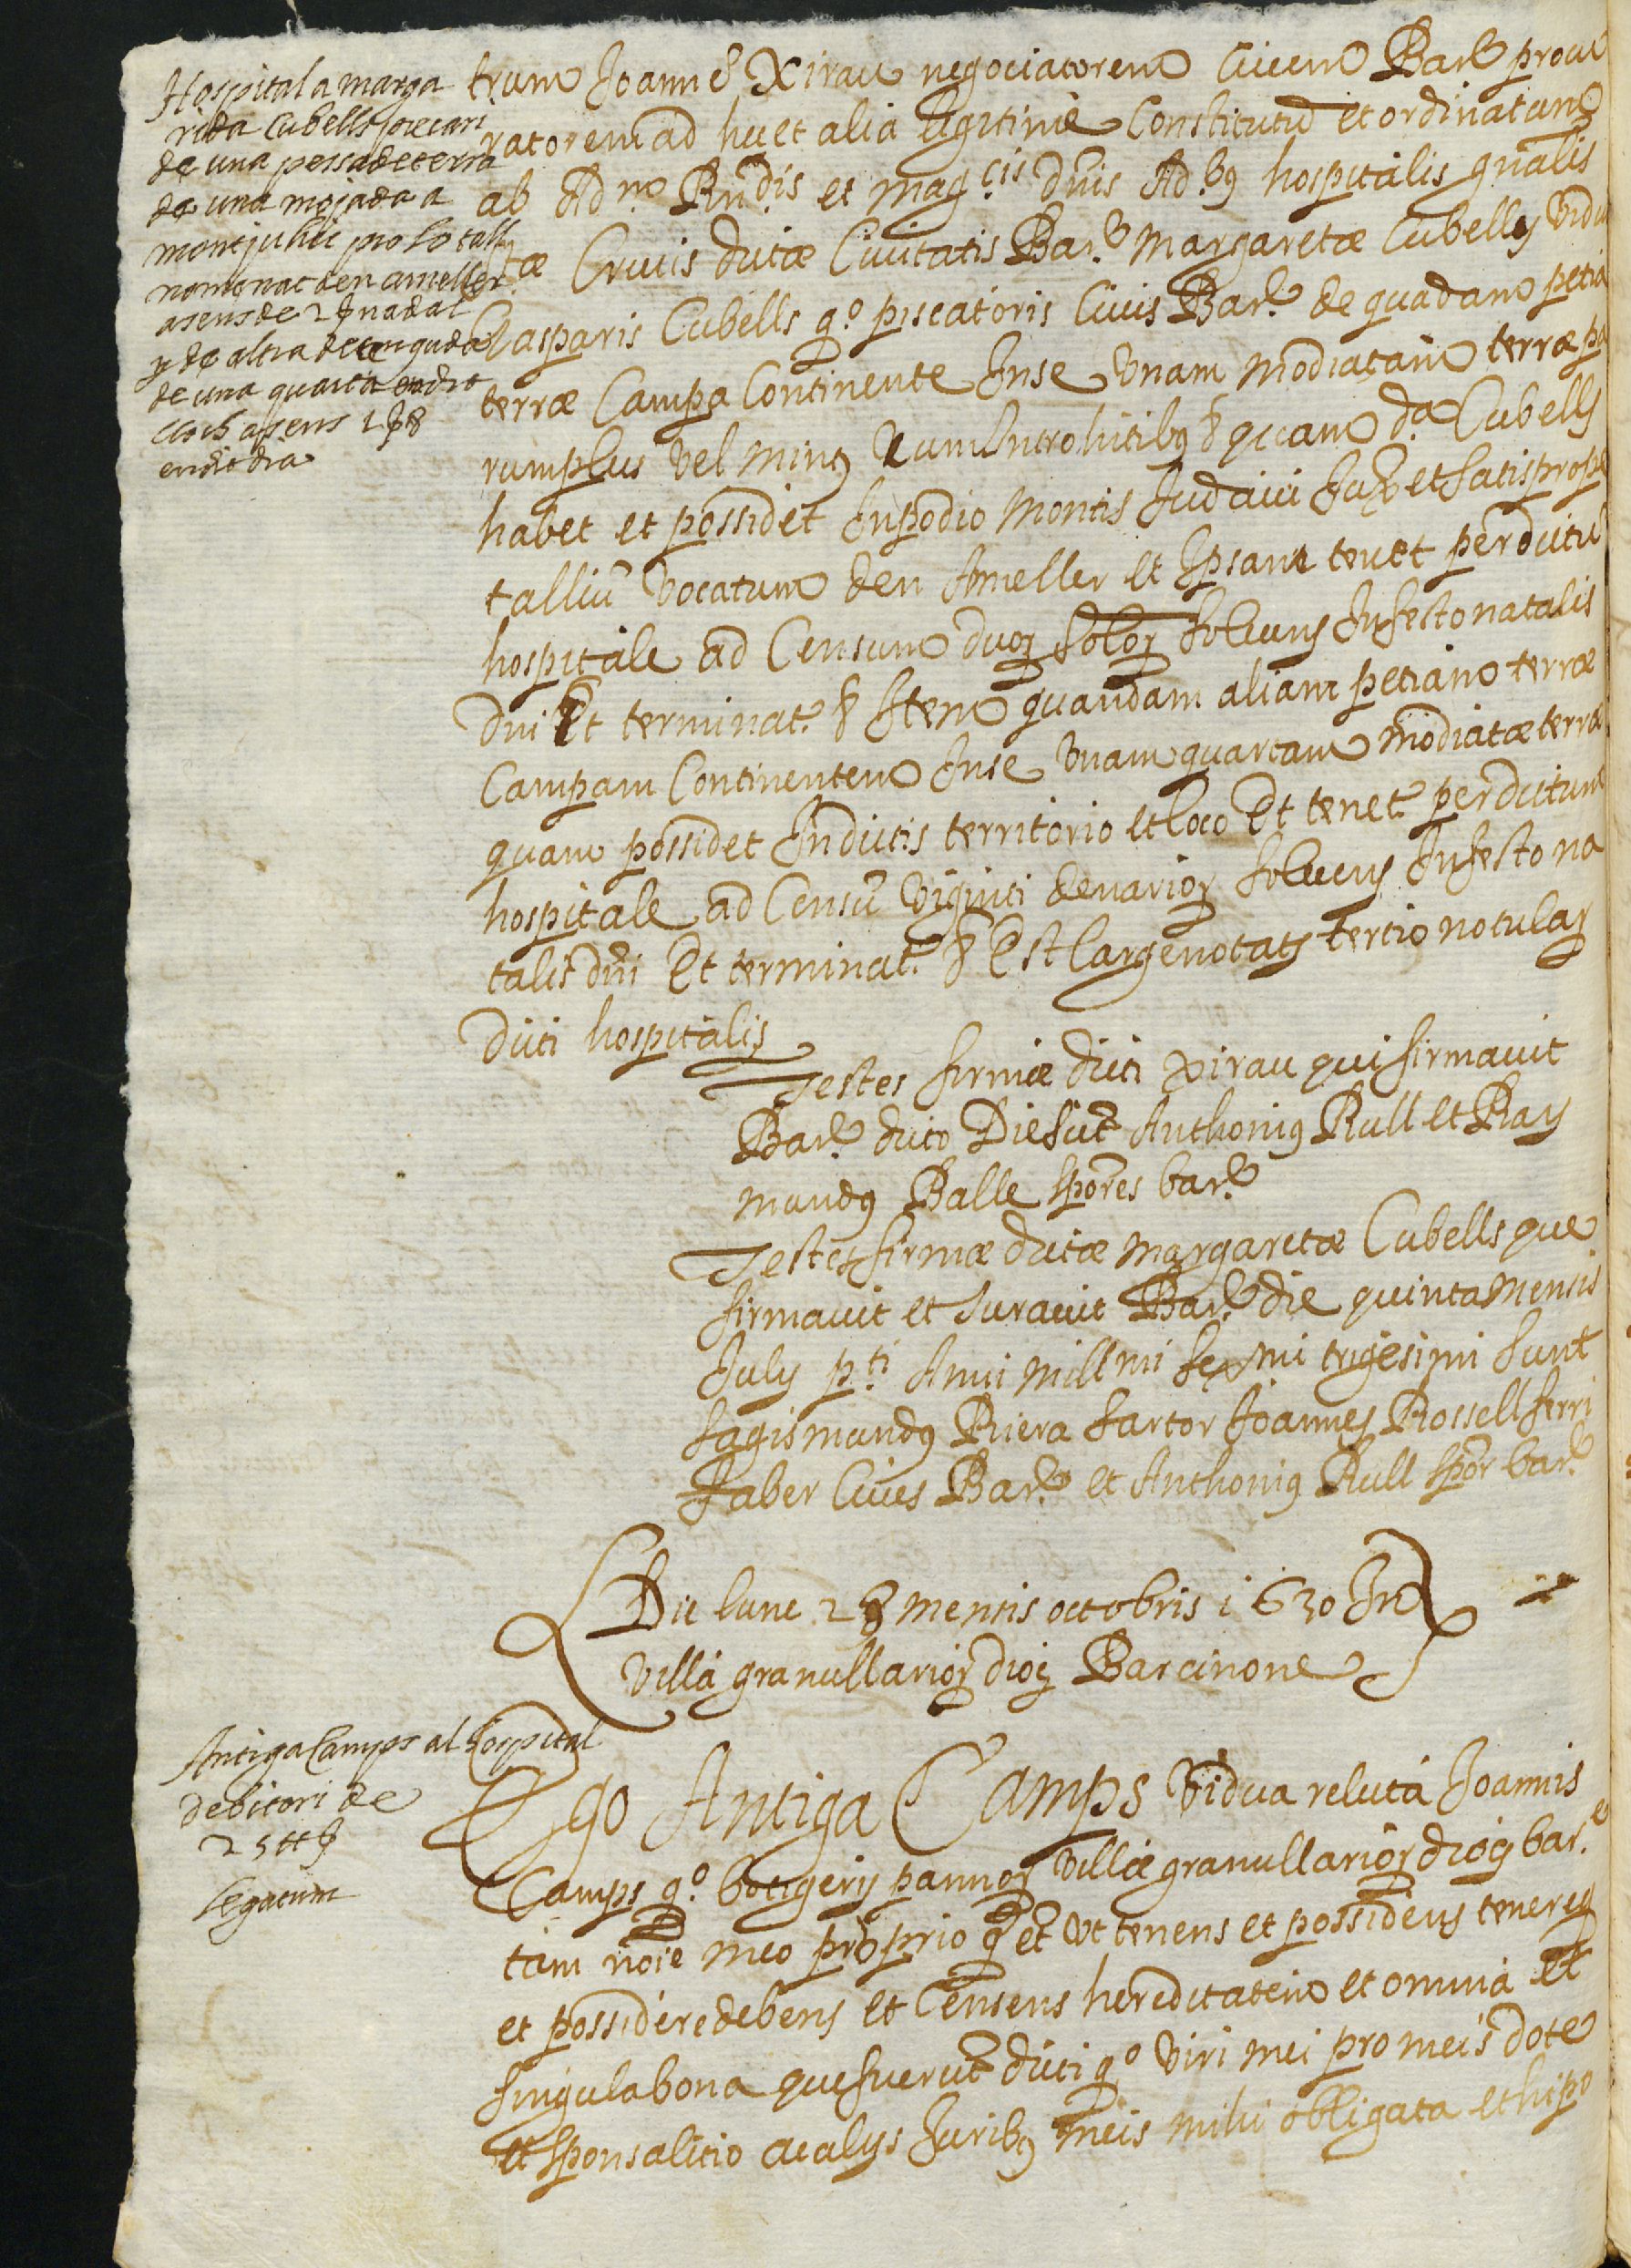 Hospital a marga
rida Cubells precari
de una pessa de terra
de una mojada a
montjuhic pro lo tall
nomenat den ameller
a sens de 2 ꝭ nadal
y de altra de tenguda
de una quarta en dit
lloch a sens 1 ꝭ 8
en dit dia
trum Joannē Xirau negociatorem Civem Barᵉ procu
ratorem ad hec et alia legitime Constitutū et ordinatum
ab Adm.º Rndis et magcis dnis Adbꝰ hospitalis gnalis
Stæ Crucis dictæ Civitatis Barᵉ Margaretæ Cubells vidu
Gasparis Cubells qº piscatoris Civis Barᵉ de quadam petia
terræ Campa Continente In se Unam modiatam terræ pa
rum plus vel minꝰ Cum Introhitibꝰ & quam dª Cubells
habet et possidet In podio Montis Judaici Juxᵃ et satis prope
talliū vocatum den Ameller et Ipsam tenet per dictū
hospitale ad Censum duoꝝ soloꝝ solvens In festo natalis
Dni Et terminatʳ & Item quandam aliam petiam terræ
Campam Continentem In se Unam quartam modiatæ terræ
quam possidet In dictis territorio et loco Et tenetʳ per dictum
hospitale ad Censū viginti denarioꝝ solvens In festo na
talis dni Et terminatʳ & Est large notatꝫ tertio notulaꝝ
dicti hospitalis
Testes firmæ dicti Xirau qui firmavit
Barᵉ dicto Die sūt Anthoniꝰ Rull et Ray
mundꝰ Balle sptores barᵉ
Testes firmæ dictæ Margaretæ Cubells que
firmavit et Juravit Barᵉ die quinta Mensis
July pti Anni millmi sexmi trigesimi Sunt
Sagismundꝰ Riera Sartor Joannes Rossell ferri
Faber Cives Barᵉ et Anthoniꝰ Rull sptor barᵉ
Die lune 28 mensis octobris 1630 In
villa granullarioꝝ diog Barcinone
Antiga Camps al hospital
debitori de
25 ₶ ꝭ
legatum
Ego Antiga Camps Vidua relicta Joannis
Camps qº botigerij pannoꝝ Villæ granullarioꝝ diog barᵉ
tam noie meo proprio q et Ut tenens et possidens tenereqꝫ
et possidere debens et Censens hereditatem et omnia et
singula bona que fuerūt dicti qº Viri mei pro meis dote
et sponsalitio ac alys Juribꝰ meis mihi obligata et hipo